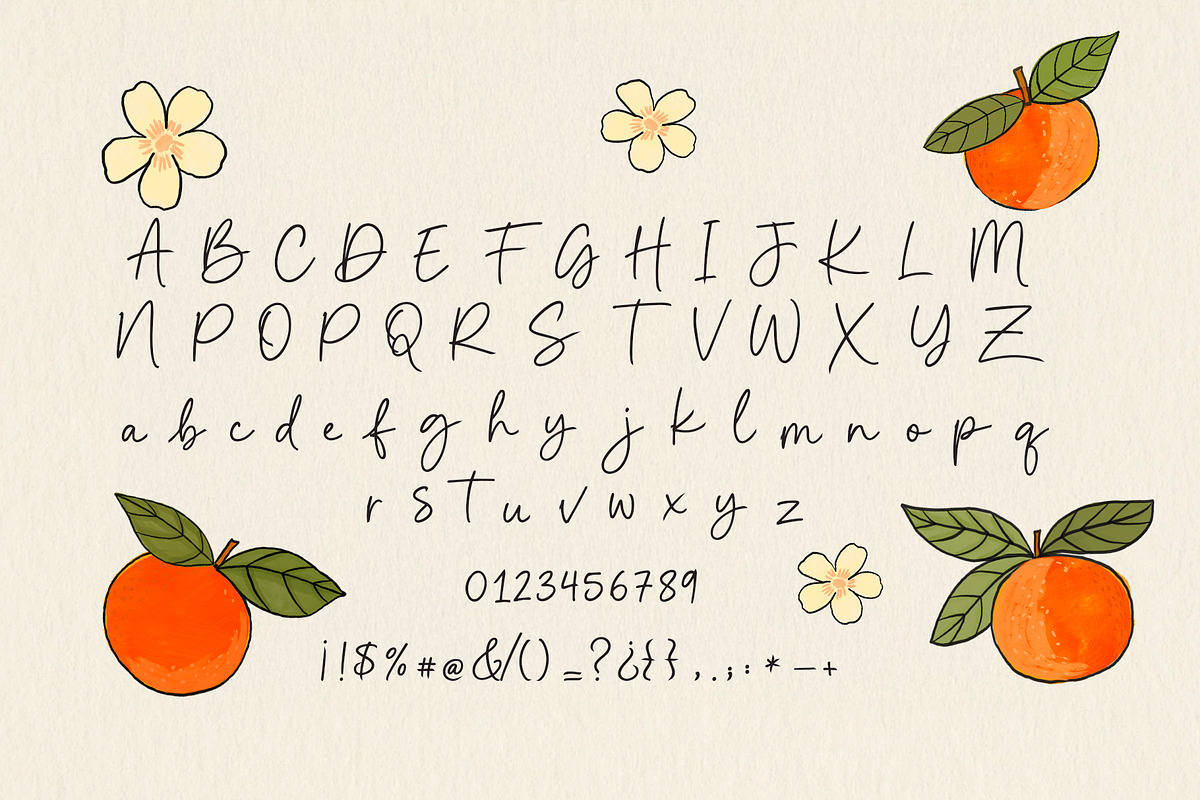 A B C D E F G H I J K L M
N P O P Q R S T V W X Y Z
a b c d e f g h y j k l m n o p q
r s T u v w x y z
0123456789
¡!$%#@&/()=?¿{},.;:*—+